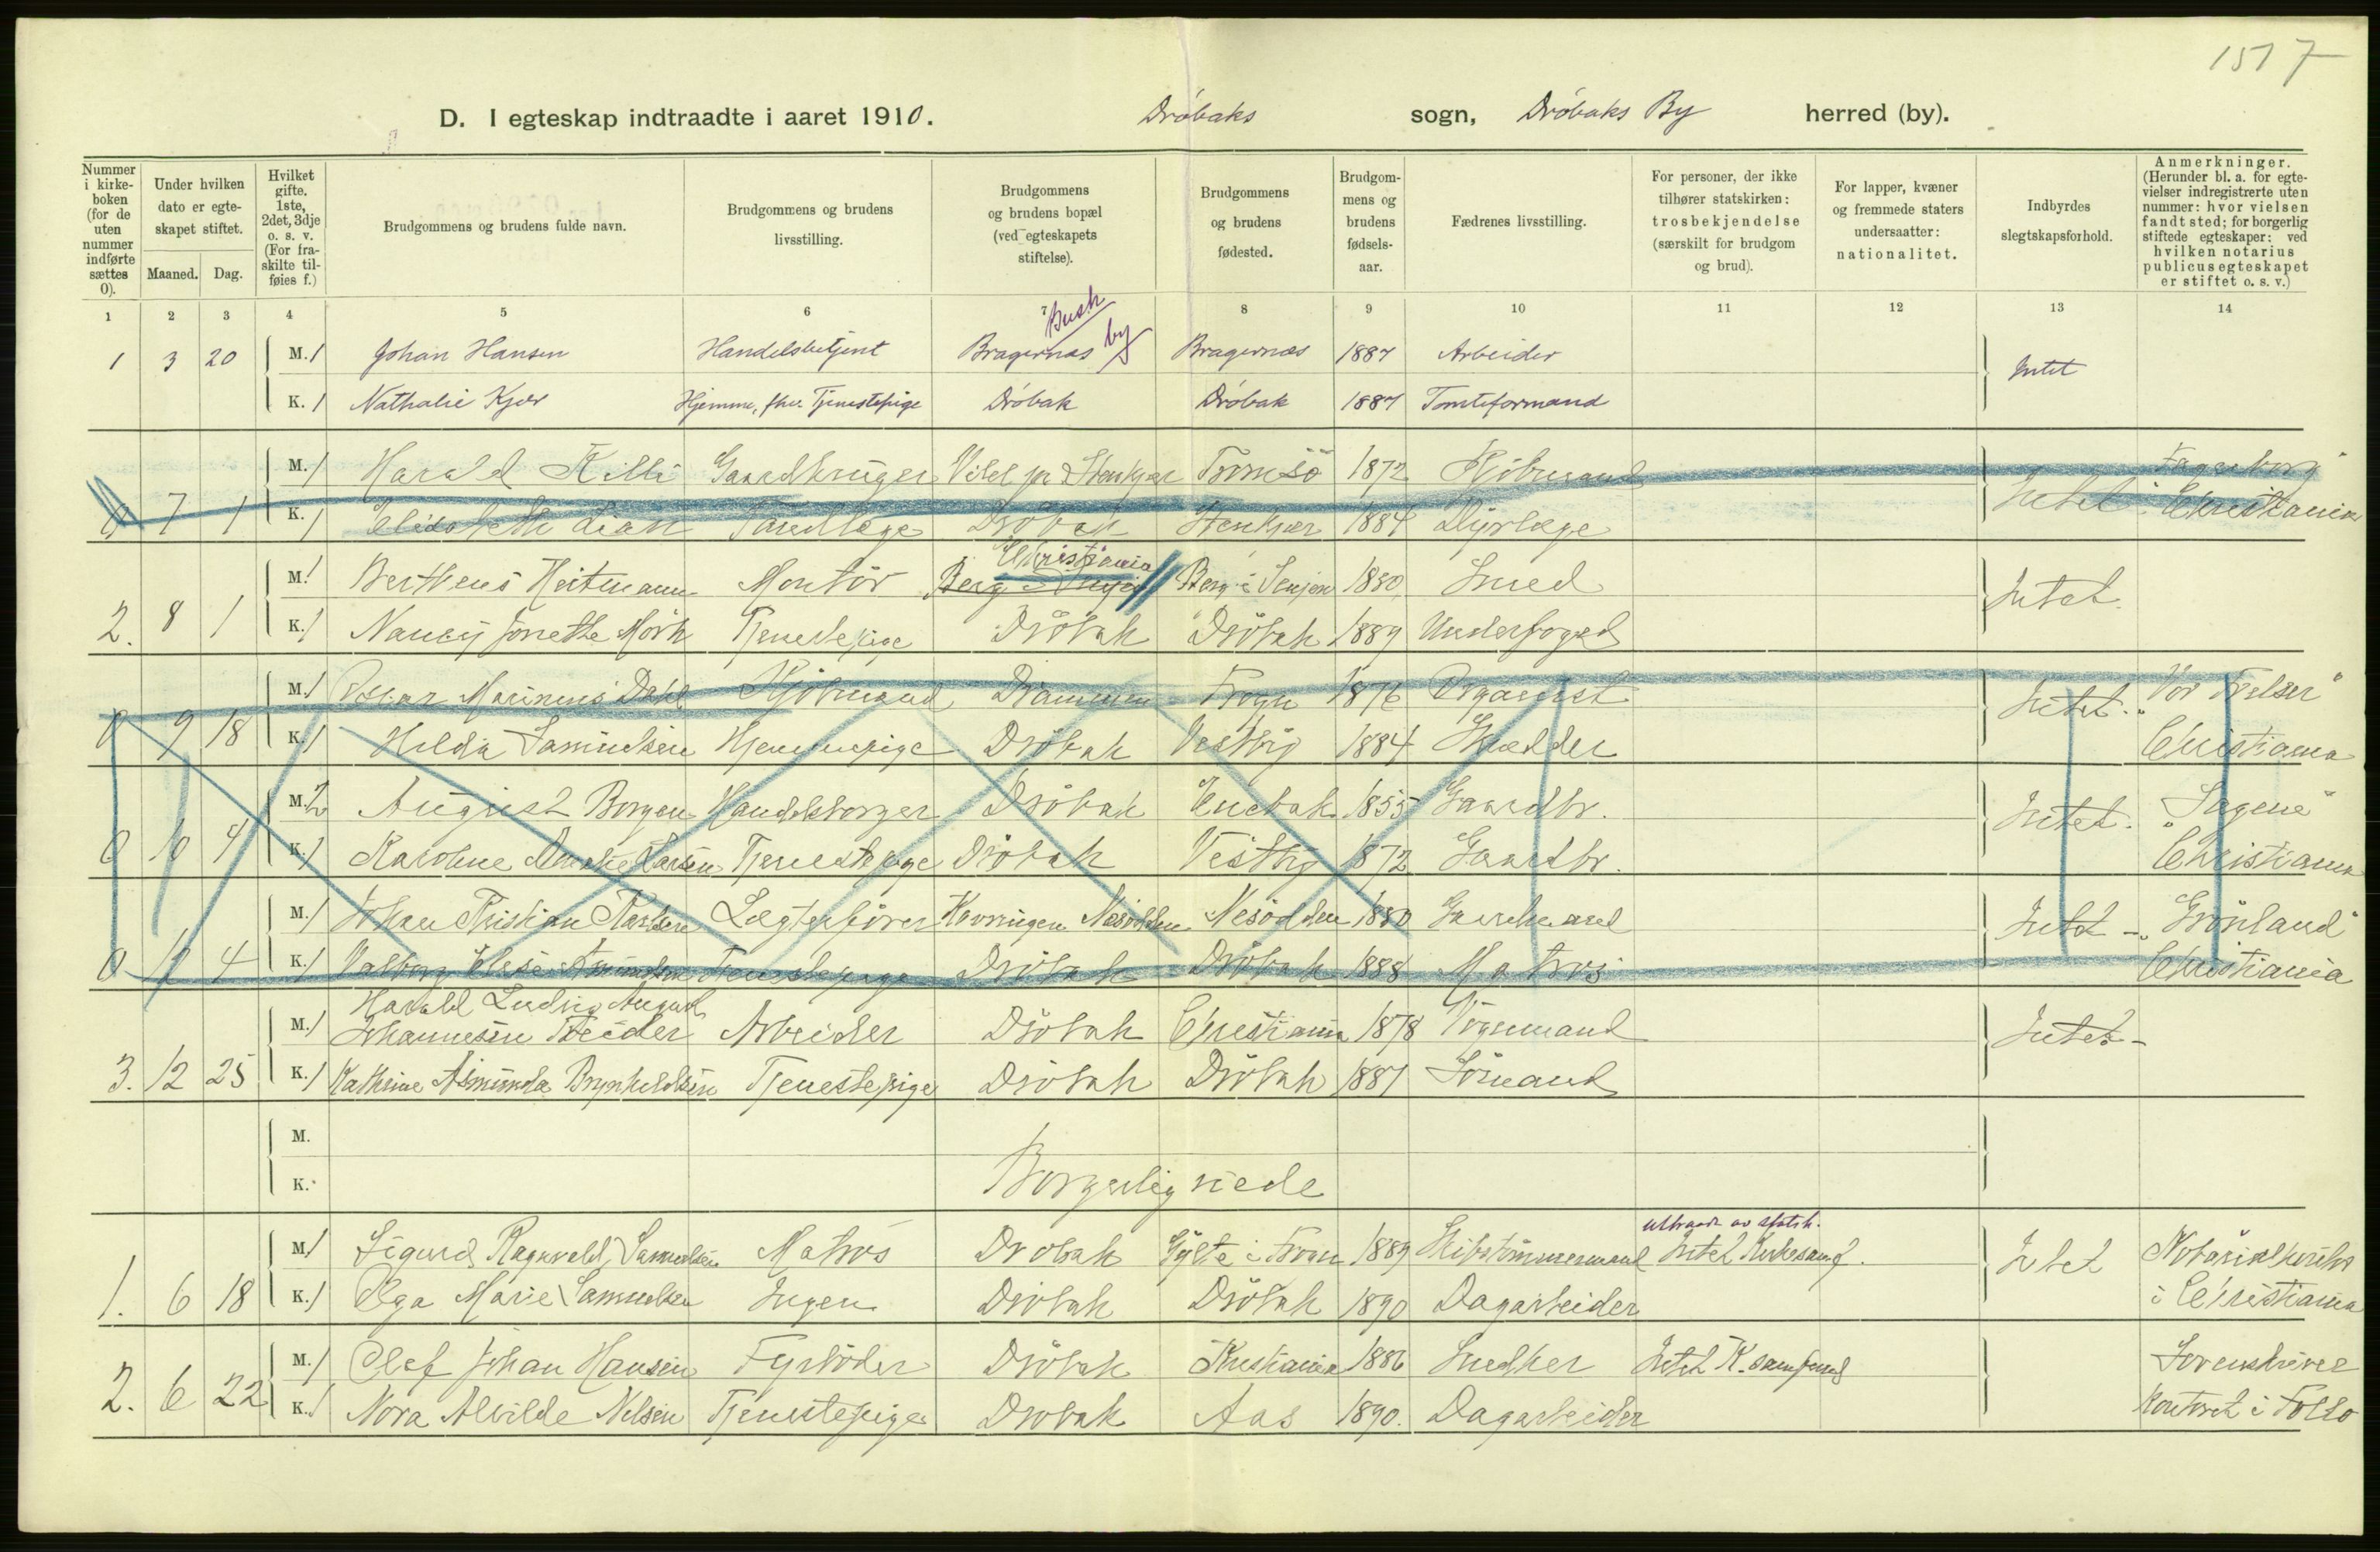 1517
D. I egteskap indtraadte i aaret 1910. Drøbaks sogn, Drøbaks By herred (by).
Nummer i kirke-boken (for de uten nummer indførte sættes 0).
Under hvilken dato er egte-skapet stiftet.
Maaned. Dag.
Hvilket gifte. 1ste, 2det, 3dje o. s. v. (For fra-skilte til-føies f.)
Brudgommens og brudens fulde navn.
Brudgommens og brudens livsstilling.
Brudgommens og brudens bopæl (ved egteskapets stiftelse).
Brudgommens og brudens fødested.
Brudgom-mens og brudens fødsels-aar.
Fædrenes livsstilling.
For personer, der ikke tilhører statskirken: trosbekjendelse (særskilt for brudgom og brud).
For lapper, kvæner og fremmede staters undersaatter: nationalitet.
Indbyrdes slegtskapsforhold.
Anmerkninger. (Herunder bl. a. for egte-vielser indregistrerte uten nummer: hvor vielsen fandt sted; for borgerlig stiftede egteskaper: ved hvilken notarius publicus egteskapet er stiftet o. s. v.)
1 2 3 4 5 6 7 8 9 10 11 12 13 14
Busk by
1 3 20 M. 1 Johan Hansen Handelsbetjent Bragernæs Bragernæs 1887 Arbeider Intet
K. 1 Nathalie Kjær Hjemme, fhv. Tjenestepige Drøbak Drøbak 1887 Tomteformand
M. 1 Harald Killi Gaardbruger Stenkjær Tromsö 1872 Kjöbmand Fagerborg"
0 7 1 K. 1 Elisabeth Lian Tandlæge Drøbak Stenkjær 1884 Dyrlæge Intet Christiania
Christiania
M. 1 Bertheus Heitmann Montör Berg i Senjen Berg i Senjen 1880 Smed Intet
2. 8 1 K. 1 Nancy Jonette Mörk Tjenestepige Dröbak Dröbak 1889 Underfoged
M. 1 Oskar Marinius Dahl Kjöbmand Drammen Frogn 1876 Organist Intet. "Vor Frelser"
0 9 18 K. 1 Hilda Samuelsen Hjemmepige Dröbak Vestby 1884 Skrædder Christiania
M. 2 August Borgen Handelsborger Dröbak Enebak 1855 Gaardbr. Intet. "Sagene"
0 10 4 K. 1 Karoline Amalie Larsen Tjenestepige Dröbak Vestby 1872 Gaardbr. Christiania
M. 1 Johan Kristian Karlsen Lægterfører Nesödden Nesödden 1880 Intet "Grönland"
0 4 K. 1 Valborg Elise Amundsen Tjenestepige Dröbak Dröbak 1888 Matros Christiania
Harald Ludvig August
M. 1 Johannesen Arbeider Dröbak Christiania 1878 Vognmand Intet
3. 12 25 K. 1 Kathrine Asminda Brynhildsen Tjenestepige Dröbak Dröbak 1887 Sömand
M.
K. Borgerlig viede
uttraadt av statsk.
M. 1 Sigurd Ragnvald Samuelsen Matros Dröbak Gylte i Frogn 1889 Skibstömmermand Intet Kirkesamf. Intet Notarialkontor
1. 6 18 K. 1 Olga Marie Samuelsen Ingen Dröbak Dröbak 1890 Dagarbeider i Christiania
M. 1 Olef Johan Hansen Fyrböder Dröbak Kristiania 1886 Snedker Intet K. samfund Sorenskriver
2. 6 22 K. 1 Nora Alvilde Nilsen Tjenestepige Dröbak Aas 1890. Dagarbeider kontoret i Follo